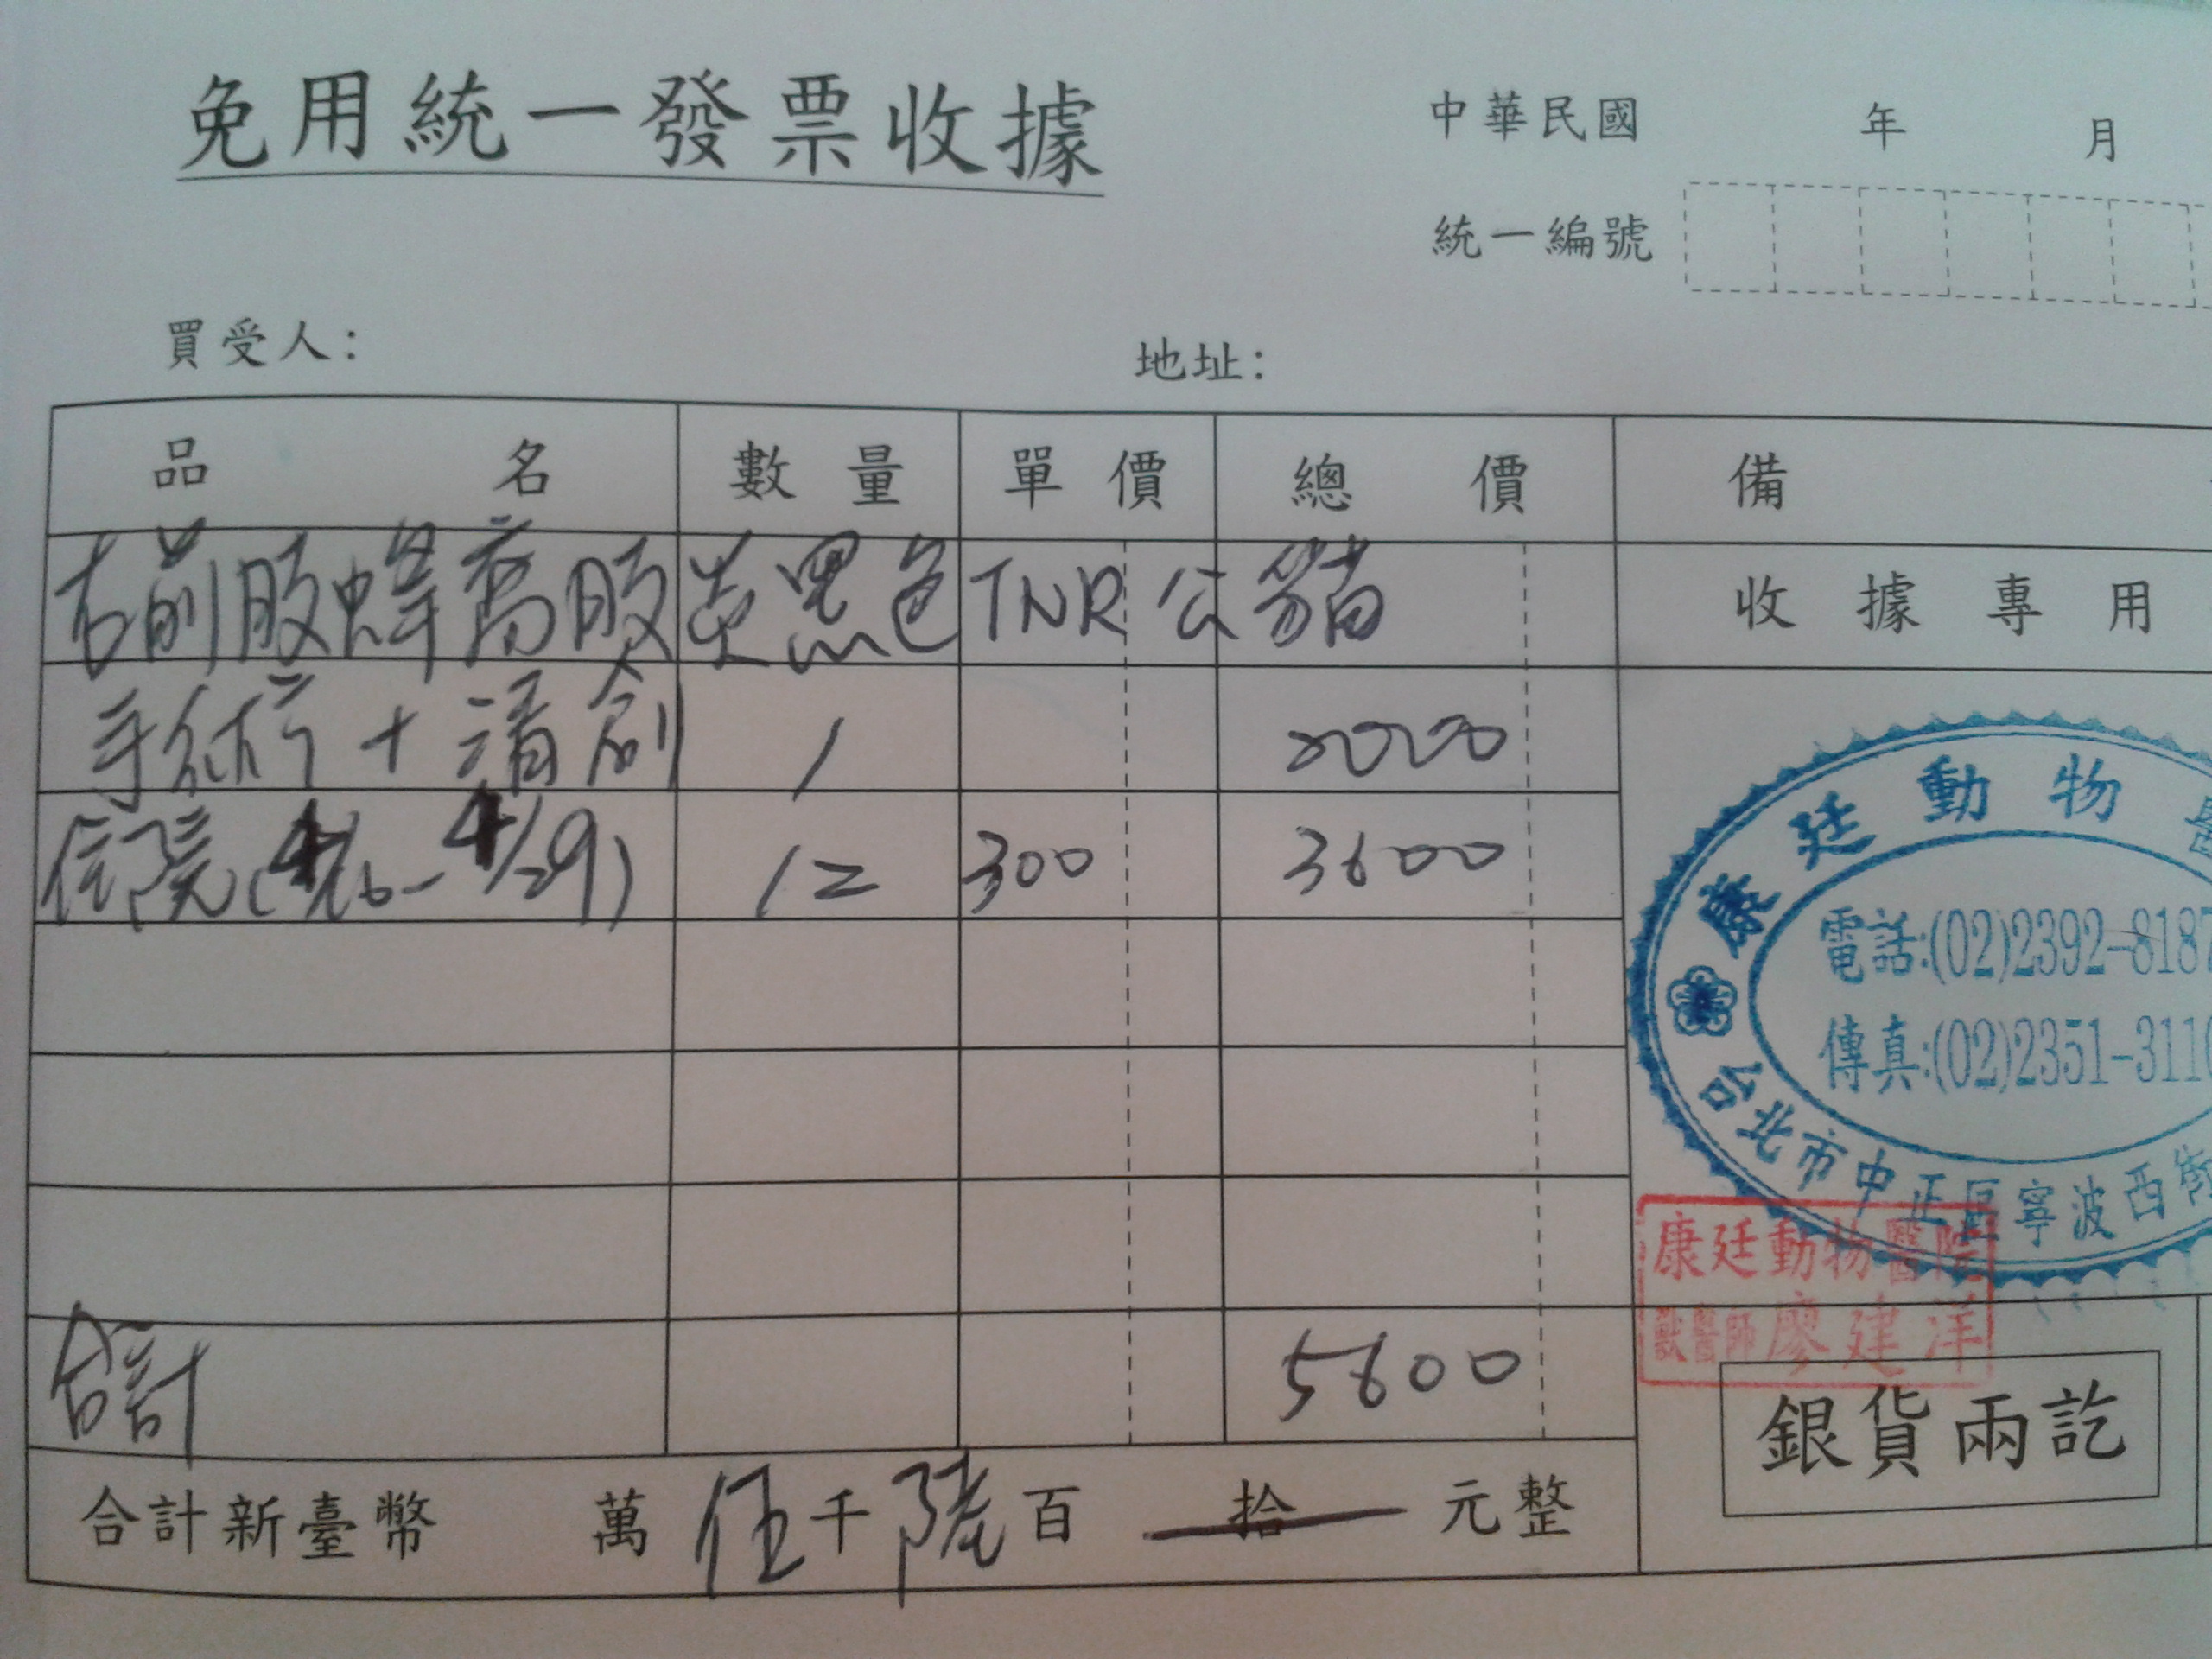 免用統一發票收據
中華民國 年 月
統一編號
買受人:
地址:
品名 數量 單價 總價 備
右前肢蜂窩 黑色TNR公貓
收據專用
手術+清創 1 2000
住院( - 4/29) 12 300 3600
康廷動物
電話:(02)2392-8187
傳真:(02)2351-311
台北市中正區寧波西街
康廷動物醫院
獸醫師廖建洋
合計 5600
銀貨兩訖
合計新臺幣 萬伍千陸百 拾 元整